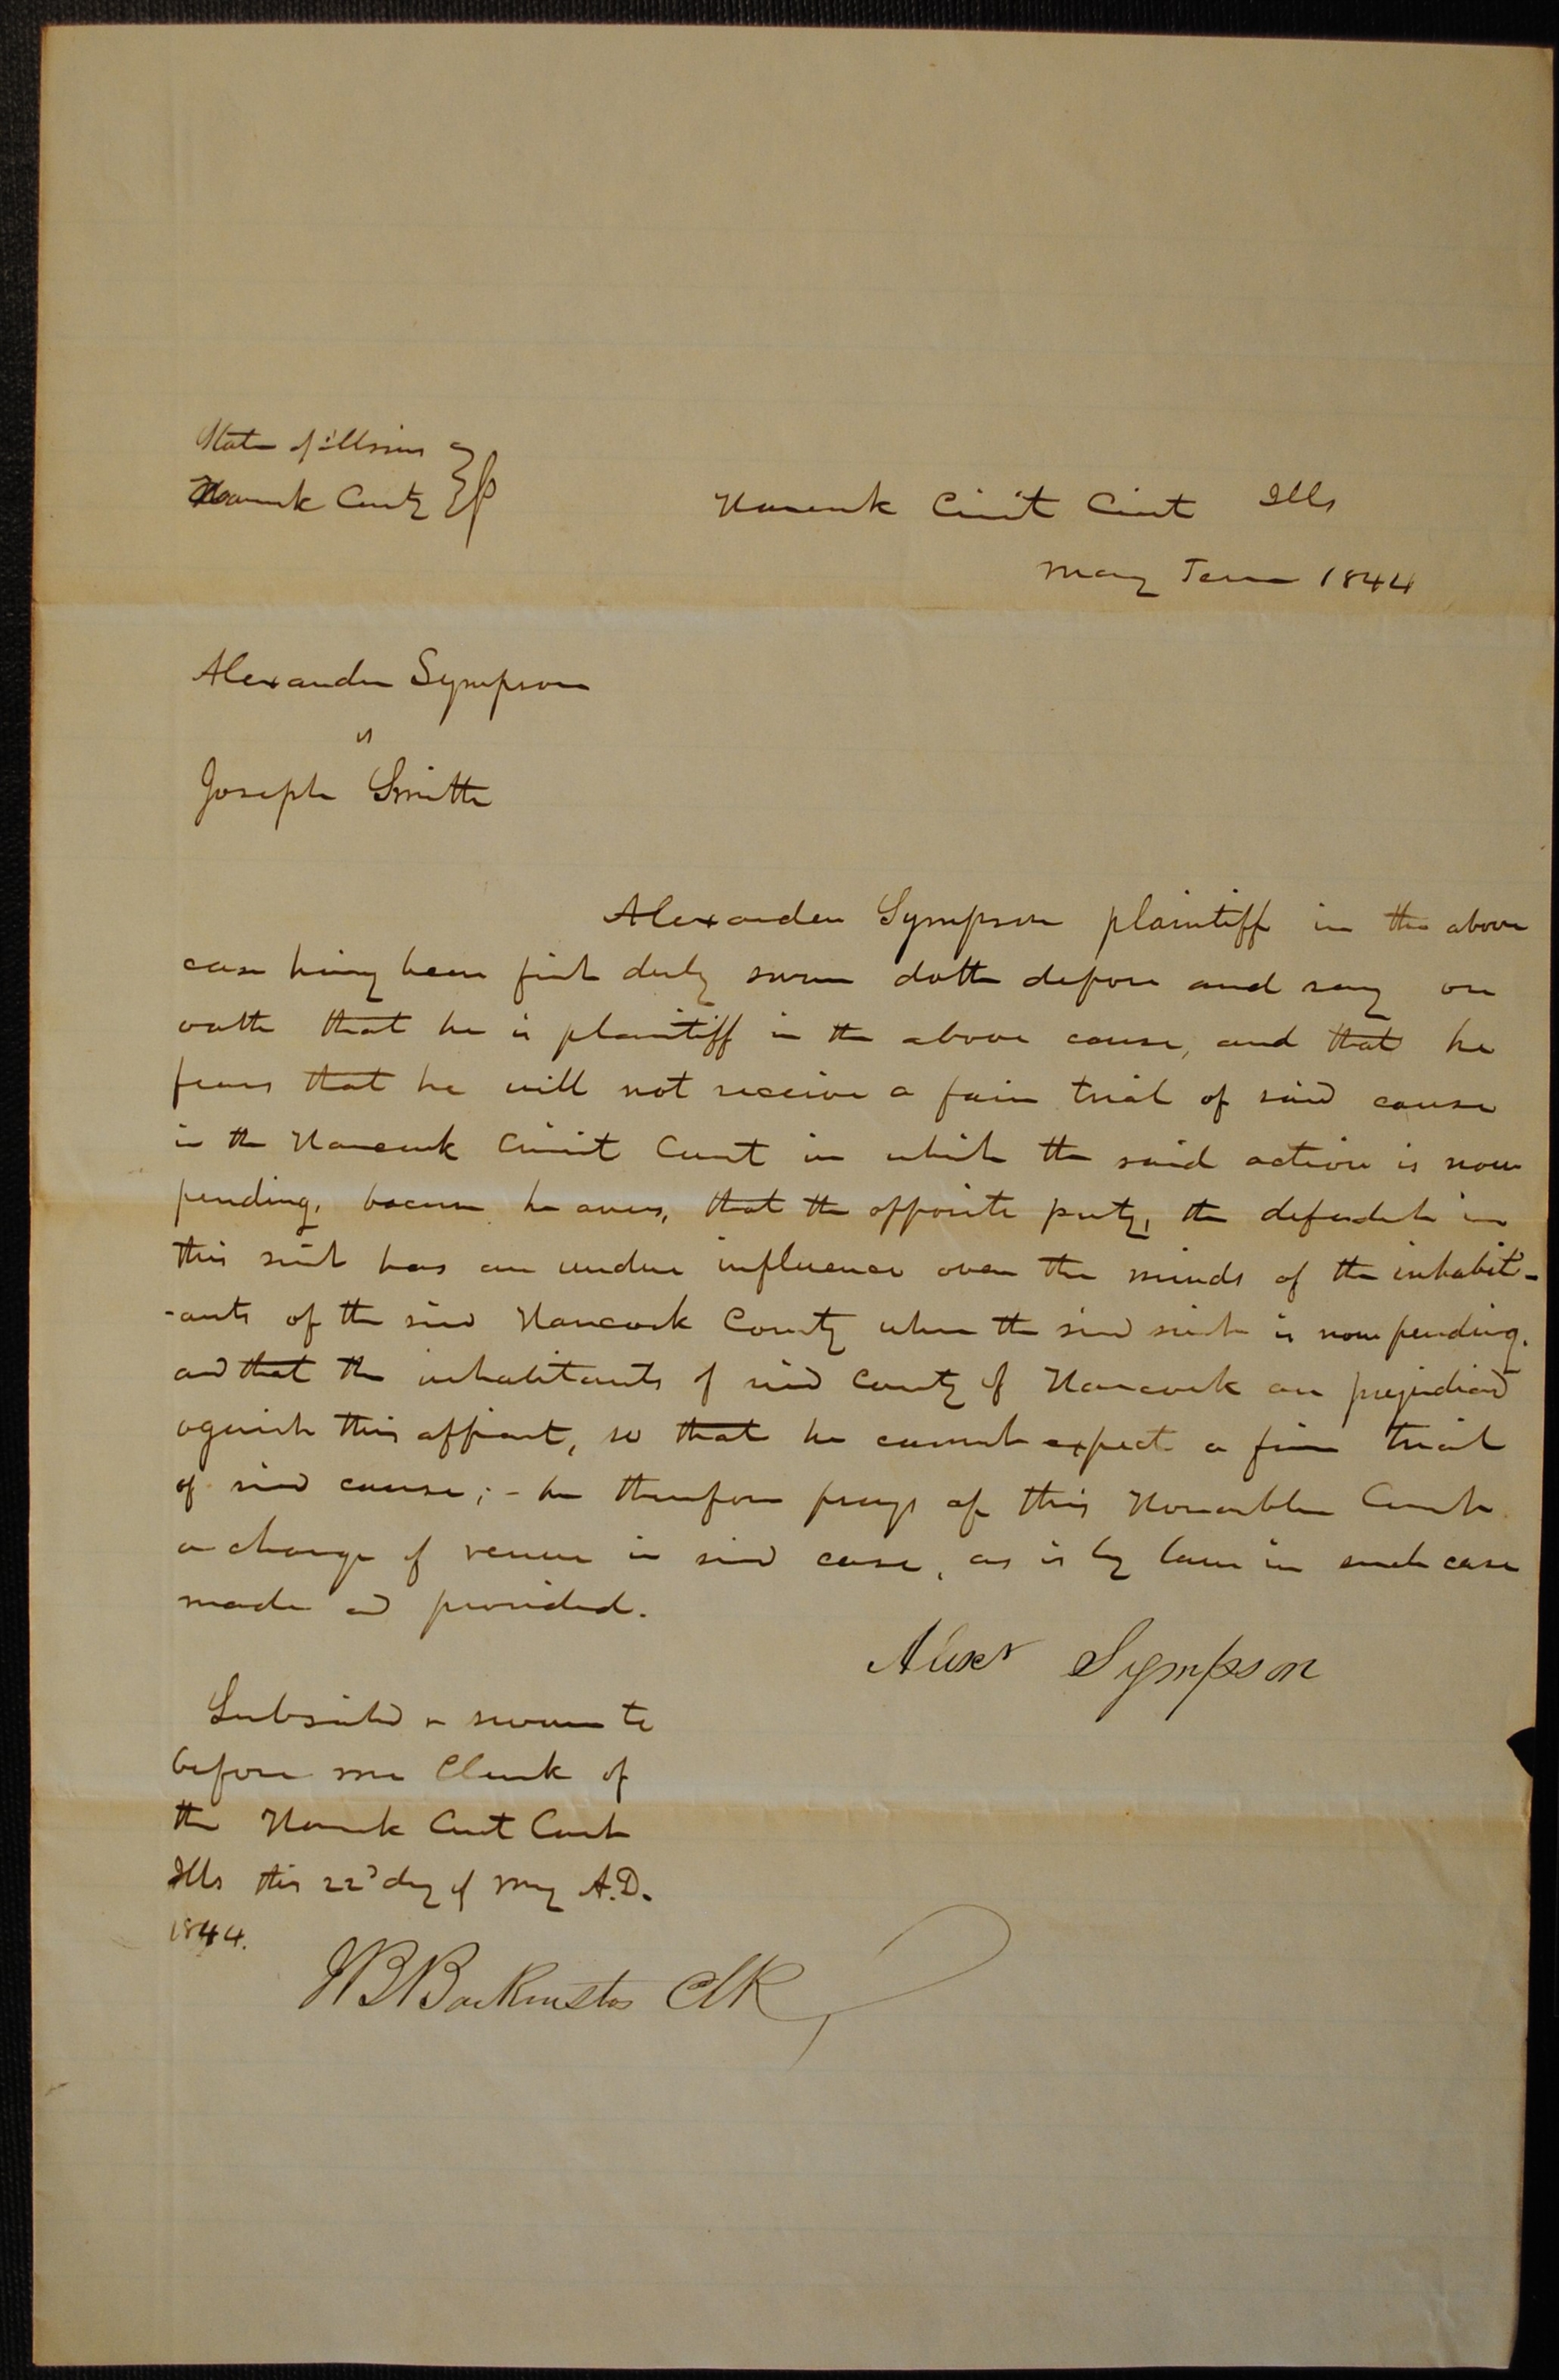 State of illinois
Hancock County } ss
Hancock Circuit Court Ills
May Term 1844
Alexander Sympson
vs
Joseph Smith
Alexander Sympson plaintiff in the above
case being been first duly sworn doth depose and say on
oath that he is plaintiff in the above cause, and that he
fears that he will not receive a fair trial of said cause
in the Hancock Circuit Court in which the said action is now
pending, because he avers, that the opposite party, the defendant in
this suit has an undue influence over the minds of the inhabit-
-ants of the said Hancock County where the said suit is now pending.
and that the inhabitants of said County of Hancock are prejudiced
against this affiant, so that he cannot expect a fair trial
of said cause; - he therefore prays of this Honorable Court
a change of venue in said case, as is by law in such case
made and provided.
Alexr Sympson
Subscribed & sworn to
before me Clerk of
the Hancock Circuit Court
Ills this 22d day of May A.D.
1844.
JB Backenstos Clk